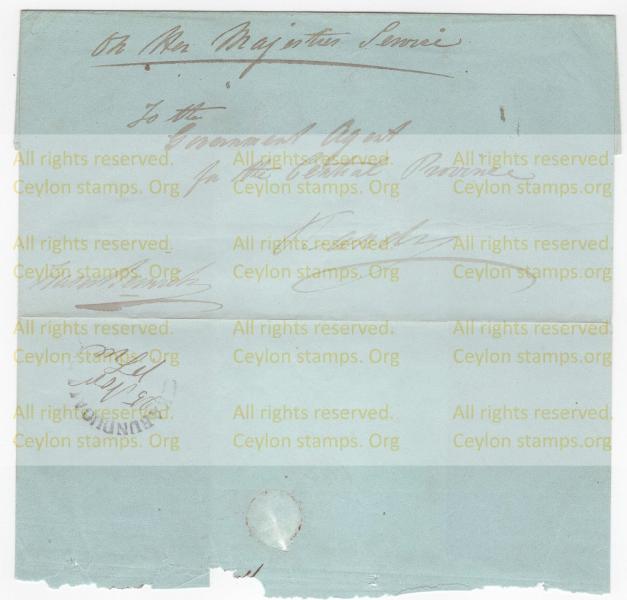 On Her Majesties Service
To the
Government Agent
for the Central Province
Kandy
All rights reserved. All rights reserved. All rights reserved.
Ceylon stamps. Org Ceylon stamps. Org Ceylon stamps. Org
All rights reserved. All rights reserved. All rights reserved.
Ceylon stamps. Org Ceylon stamps. Org Ceylon stamps. Org
All rights reserved. All rights reserved. All rights reserved.
Ceylon stamps. Org Ceylon stamps. Org Ceylon stamps. Org
All rights reserved. All rights reserved. All rights reserved.
Ceylon stamps. Org Ceylon stamps. Org Ceylon stamps. Org